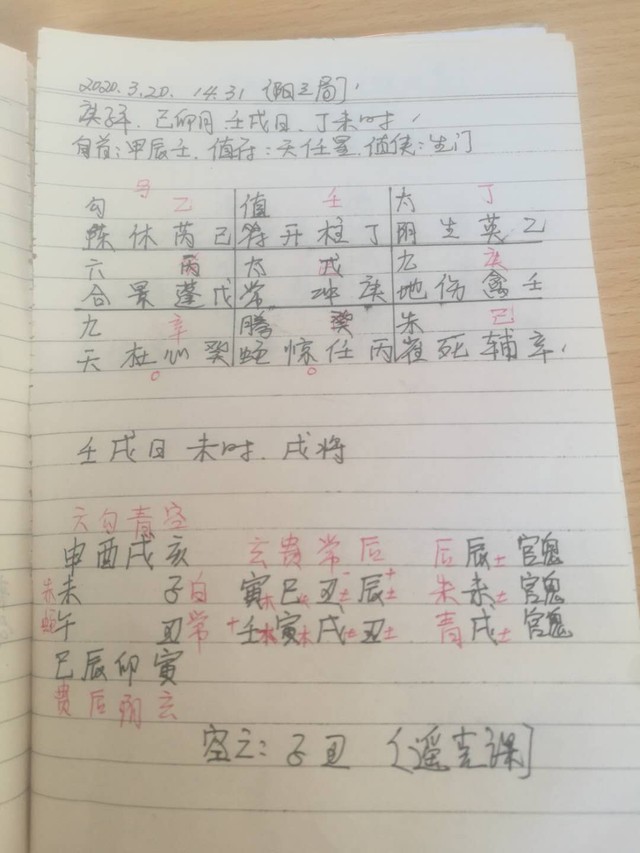 2020.3.20. 14.31 [阳三局],
庚子年.己卯月.壬戌日.丁未时,
旬首:甲辰壬.值符:天任星.值使:生门
勾 乙 值 壬 太 丁
陈休芮己 符开柱丁 阴生英乙
六 丙 太 戊 九 庚
合景蓬戊 常 冲庚 地伤禽壬
九 辛 腾 癸 朱 己
天杜心癸 蛇惊任丙 雀死辅辛.
壬戌日 未时.戌将
六勾青空
申酉戌亥 玄贵常后 后辰土 官鬼
朱未 子白 寅木巳火丑土辰土 朱未土 官鬼
蛇午 丑常 壬木寅木戌土丑土 青戌土 官鬼
巳辰卯寅
贵后阴玄
空亡:子丑 [遥克课]